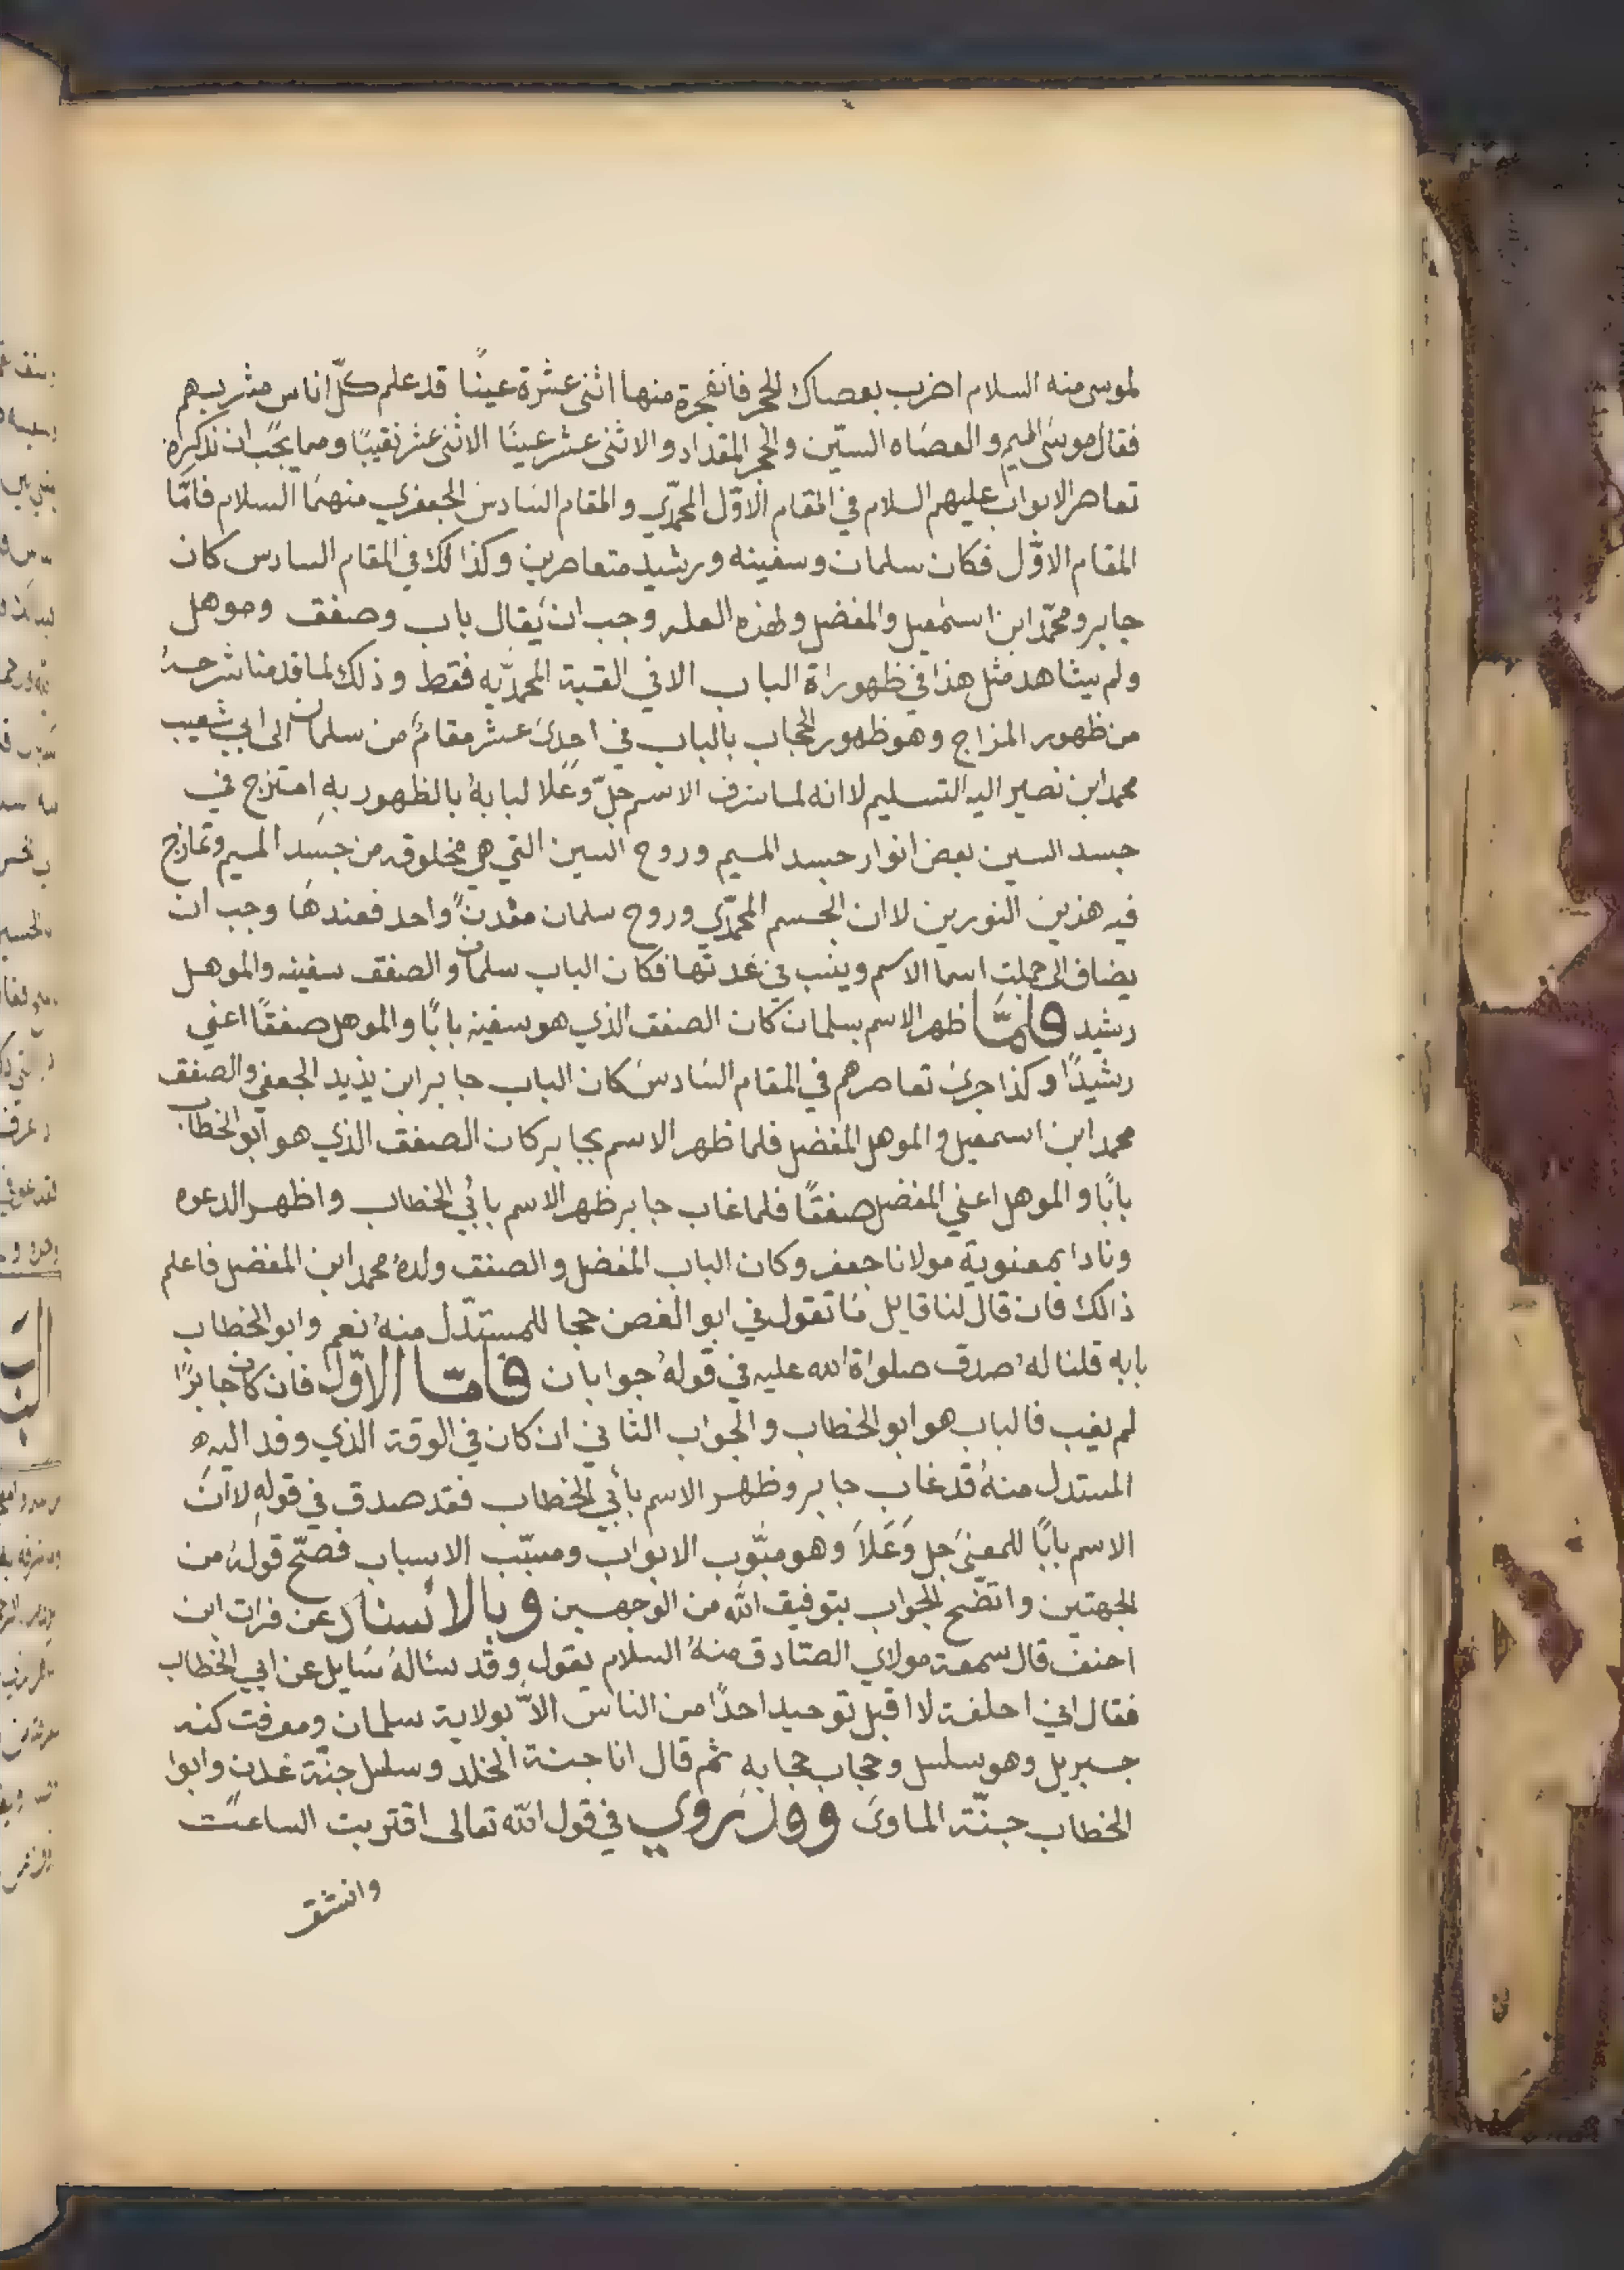 لموسى منه السلام اضرب بعصاك الحجر فانفجرة منها اثنى عشرة عينًا قد علم كلّ اناس مشربهم
فقال موسى الميم والعصاه السّين والحجر المقداد والاثنى عشر عينًا الاثنى عشر نقيبًا ومما يجب ان نذكره
تعاصر الابواب عليهم السلام في المقام الاوّل المحمّدي والمقام السادس الجعفري منهما السلام فامّا
المقام الاوّل فكان سلمان وسفينه ورشيد متعاصرين وكذالك في المقام السادس كان
جابر ومحمّد ابن اسمعيل والمفضل ولهذه العله وجب ان يقال باب وصفق وموهل
ولم يشاهد مثل هذا في ظهوراة الباب الا في القبة المحمّديّه فقط وذلك لما قدمنا شرحه
من ظهور المزاج وهو ظهور الحجاب بالباب في احدى عشر مقام من سلمان الى ابي شعيب
محمد ابن نصير اليه التسليم لاانه لما شرف الاسم جلّ وعلا لبابهُ بالظهور بهِ امتزج في
جسد السين بعض انوار جسد الميم وروح السين التي هي مخلوقه من جسد الميم وتمازج
فيه هذين النورين لاان الجسم المحمّدي وروح سلمان معدنٌ واحد فعندها وجب ان
يضاف الى جملت اسما الاسم وينسب في عدتها فكان الباب سلمان والصفق سفينه والموهل
رشيد فلمّا ظهر الاسم بسلمان كان الصفق الذي هو سفينه بابًا والموهل صفقًا اعني
رشيدًا وكذا جرى تعاصرهم في المقام السادس كان الباب جابر ابن يذيد الجعفي والصفق
محمد ابن اسمعيل والموهل المفضل فلما ظهر الاسم بجابر كان الصفق الذي هو ابو الخطاب
بابًا والموهل اعني المفضل صفقًا فلما غاب جابر ظهر الاسم بابي الخطاب واظهر الدعوه
ونادا بمعنوية مولانا جعفر وكان الباب المفضل والصفق ولدهُ محمد ابن المفضل فاعلم
ذالك فان قال لنا قايل ما تقول في ابو الغصن حجا للمستدّل منهُ نعم وابو الخطاب
بابه قلنا لهُ صدق صلواة الله عليه في قولهُ جوابان فامّا الاوّل فان كان جابرًا
لم يغيب فالباب هو ابو الخطاب والجواب الثاني ان كان في الوقة الذي وفد اليه
المستدل منهُ قد غاب جابر وظهر الاسم بأبي الخطاب فقد صدق في قولهِ لاان
الاسم بابًا للمعنى جل وَعَلاَ وهو مبّوب الابواب ومسبّب الاسباب فصحّ قولهُ من
الجهتين واتضح الجواب بتوفيق الله من الوجهين وبالاسناد عن فرات ابن
احنف قال سمعة مولاي الصادق منهُ السلام يقول وقد سئالهُ سَايل عن ابي الخطاب
فقال اني احلفة لا اقبل توحيد احدًا من الناس الاّ بولاية سلمان ومعرفت كنه
جبريل وهو سلسل وحجاب حجابهِ ثم قال انا جنة الخلد وسلسل جنّة عدن وابوا
الخطاب جنّة الماوىَ وقد روي في قول الله تعالى اقتربت الساعت
وانشق